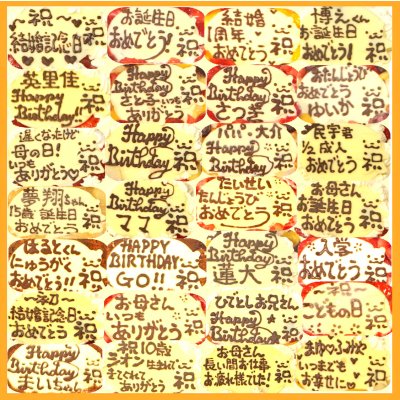 〜祝〜
結婚記念
お誕生日
おめでとう!
祝
結婚
1周年
おめでとう
祝
博えくん
お誕生日
おめでとう!
英里佳
Happy
Birthday!!
祝
Happy
Birthday
さと子 いつも
ありがとう
祝
Happy
Birthday
さつき
祝
おたんじょうび
おめでとう
ゆいか
祝
遅くなったけど
母の日!
いつも
ありがとう
祝
Happy
Birthday
祝
パパ・大介
Happy
Birthday
祝
民宇君
1/2成人
おめでとう
祝
夢翔ちゃん
15歳誕生日
おめでとう
祝
Happy
Birthday
ママ
祝
たいせい
たんじょうび
おめでとう
祝
お母さん
お誕生日
おめでとう
祝
はるとくん
にゅうがく
おめでとう!!
祝
HAPPY
BIRTHDAY
GO!!
祝
HAPPY
BIRTHDAY
蓮大
祝
入学
おめでとう
祝
結婚記念日
おめでとう
祝
お母さん
いつも
ありがとう
祝
ひでとしお兄さん
Happy
Birthday
祝
〜祝〜
こどもの日
祝
Happy
Birthday
まいちゃん
祝
祝10歳
生まれて
きてくれて
ありがとう
祝
お母さん
長い間お仕事
お疲れ様でした!
祝
まゆ♡ふみや
いつまでも
お幸せに♡
祝